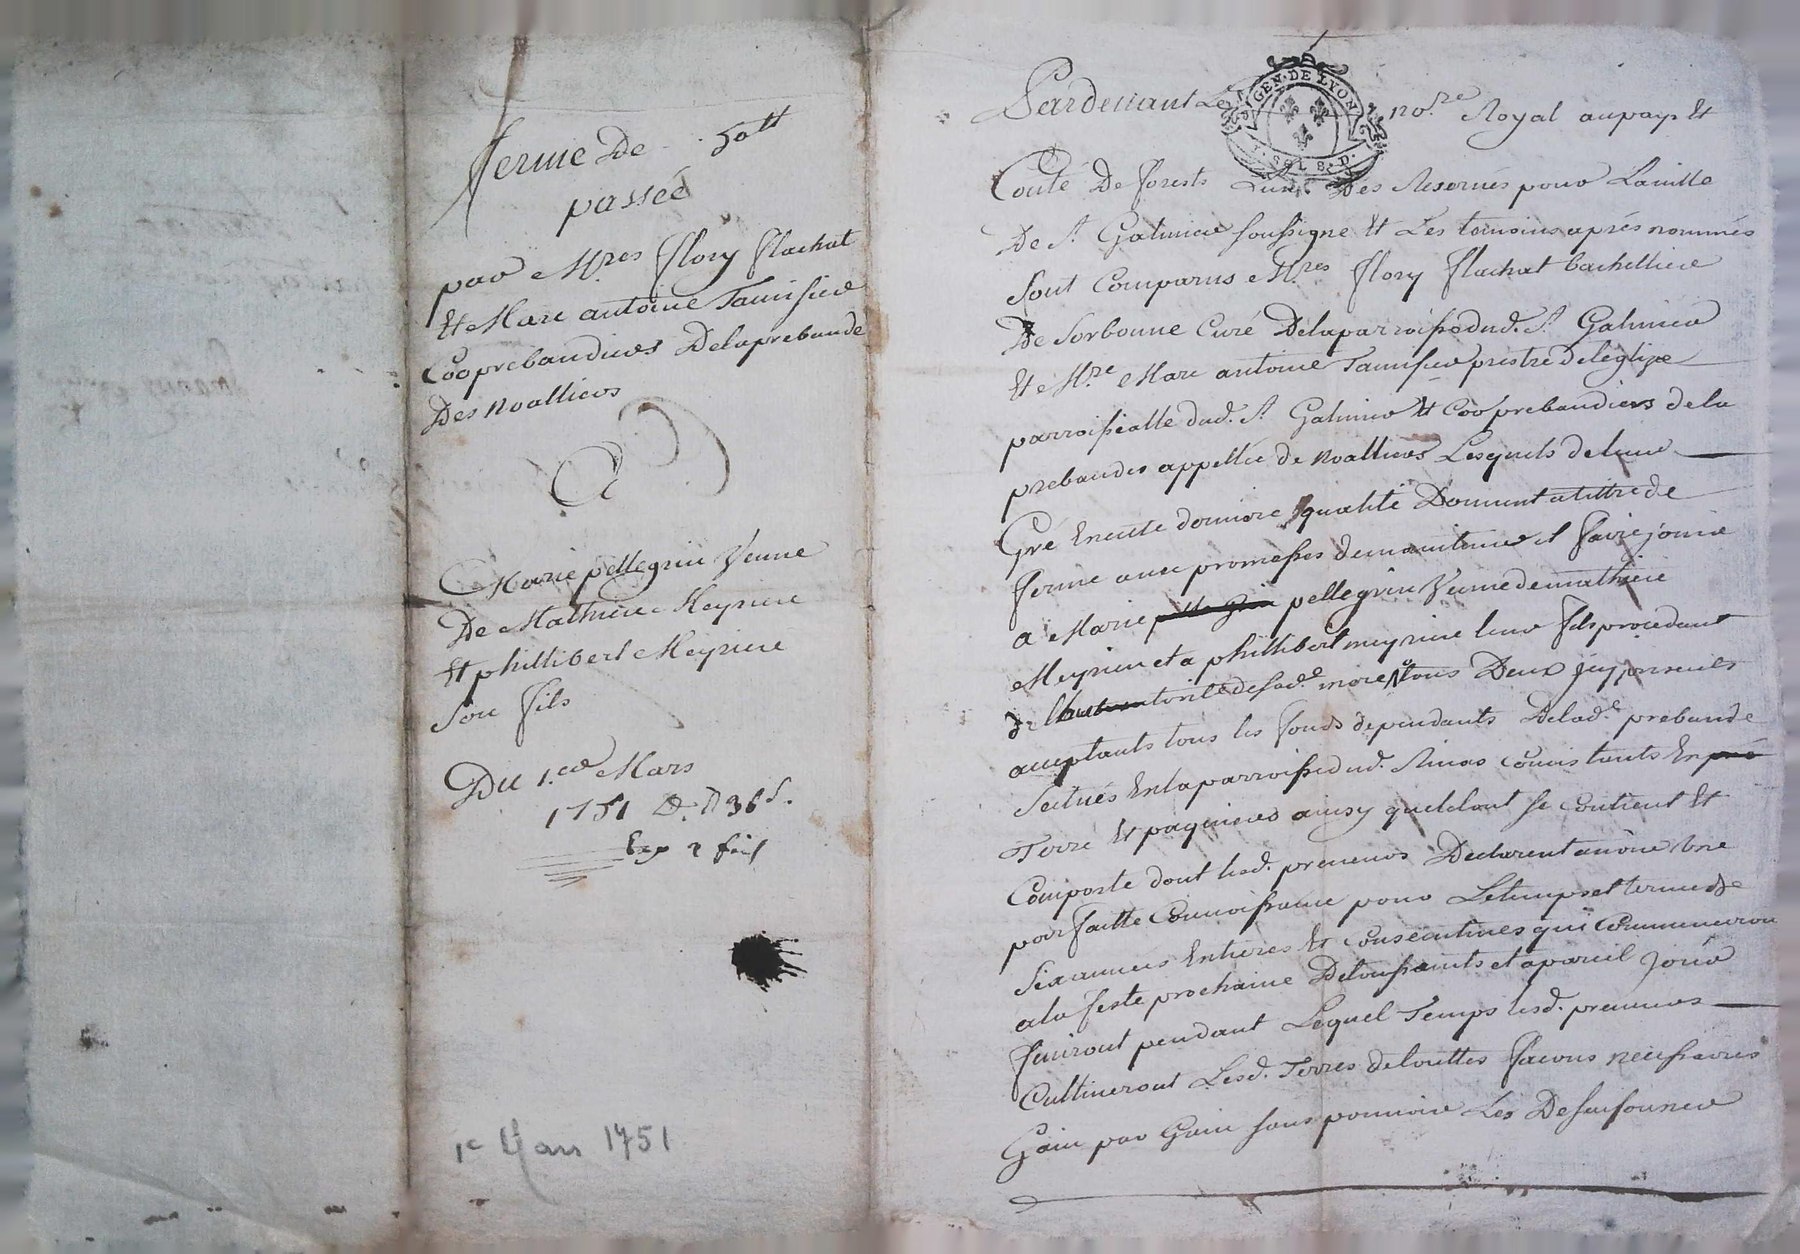 ferme De 50tt
passée
par Mres flory flachat
Et Marc antoine Tamisier
Cooprebandiers Delaprebande
Des Noalliers
A
Marie pellegrin Veuve
De Mathieu Meyriere
Et phillibert Meyriere
Son fils
Du 1.er Mars
1751
1e Mars 1751
Pardevant Le nore Royal aupays Et
GEN. DE LYON
SOLS. D.
Conté De forests Lun Des Reservés pour Laville
De St Galmier soussigné Et Les temoins aprés nommés
Sont Comparus Mres flory flachat bachellier
De Sorbonne Curé Delaparroisse dud. St Galmier
Et Mre Marc antoine Tamisier prestre Deleglize
parroissialle dud. St Galmier Et Cooprebandiers dela
prebandes appellée de Noalliers Lesquels deleur
Gré Encette derniere qualité Donnent atittre de
ferme avec promesses demaintenir et faire jouir
a Marie pellegrin Veuve demathieu
Meyriere et a phillibert meyriere leur fils procedant
de lauthorité de sade mere tous Deux jcy presents
acceptants tous les fonds dependants Delade prebande
Scitués Enlaparroisse dud. Rivas Consistants En pré
Terre Et paquiers ainsy quel tout se Contient Et
Comporte dont lesd. preneurs Declarent avoir Une
parfaitte Connoissance pour Letemps et terme de
Six années Entieres Et Consecutives qui Commenceron
ala feste prochaine Detoussaints et apareil jour
finiront pendant Lequel Temps lesd. preneurs
Cultiveront Lesd. Terres detouttes facons necessaires
Gain par Gain sans pouvoir Les Desaisonner